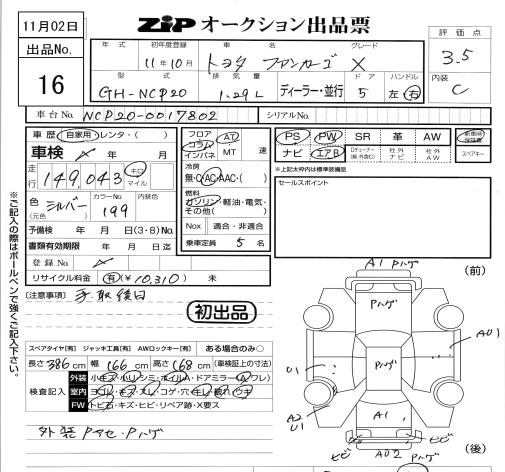 11月02日
ZiP オークション出品票
評価点
3.5
内装
C
出品No.
16
年式 初年度登録 車名 グレード
11年10月 トヨタ ファンカーゴ X
型式 排気量 ドア ハンドル
GH-NCP20 1.29L ディーラー・並行 5 左・右
車台No. NCP20-0017802 シリアルNo.
車歴 自家用・レンタ・( )
車検 年 月
走行 149,043 キロ マイル
色 (元色) シルバー カラーNo. 199 内装色
予備検 年 月 日(3・8)No.
書類有効期限 年 月 日迄
登録No.
リサイクル料金 有(¥10,310) 未
フロア コラム インパネ AT MT 速
冷房
無・C・AC・AAC・( )
燃料
ガソリン・軽油・電気・その他( )
Nox 適合・非適合
乗車定員 5 名
PS PW SR 革 AW 新車時保証書
ナビ エアB Dチューナー 社外ナビ 社外AW スペアキー
※上記太枠内は標準装備品
セールスポイント
[注意事項] 書取後日
初出品
スペアタイヤ[有] ジャッキ工具[有] AWロックキー[有] ある場合のみ○
長さ 386 cm 幅 166 cm 高さ 168 cm (車検証上の寸法)
検査記入
外装 小キズ・小U・シミ・ホイルA・ドアミラー(A ワレ)
室内 ヨゴレ・キズ・スレ・コゲ・穴・キレ・破れ・ウキ
FW トビ石・キズ・ヒビ・リペア跡・X要ス
外装 Pアセ・Pハゲ
※ご記入の際はボールペンで強くご記入下さい。
(前)
A1 Pハゲ
Pハゲ
A01
U1
Pハゲ
A2
U1
A1
ヒビ
A02 Pハゲ
ヒビ
(後)